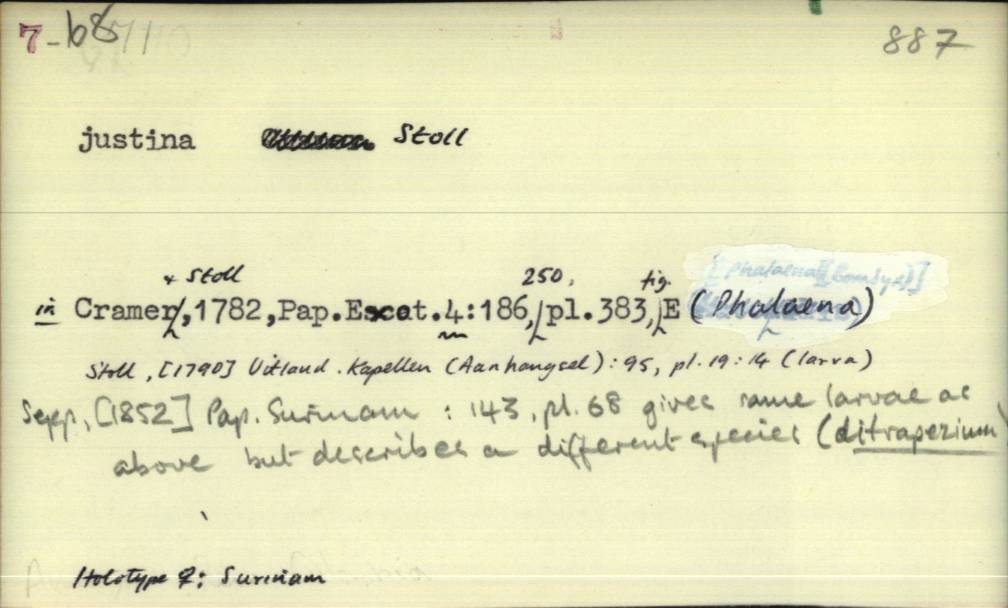 7-68 887
justina Stoll
& Stoll 250, fig.
in Cramer, 1782, Pap. Exot. 4:186, pl. 383, E (Phalaena)
[Phalaena (Bombyx)]
Stoll, [1790] Uitland. Kapellen (Aanhangsel): 95, pl. 19: 14 (larva)
Sepp, [1852] Pap. Surinam : 143, pl. 68 gives same larvae as
above but describes a different species (ditrapezium
Holotype ♀: Surinam